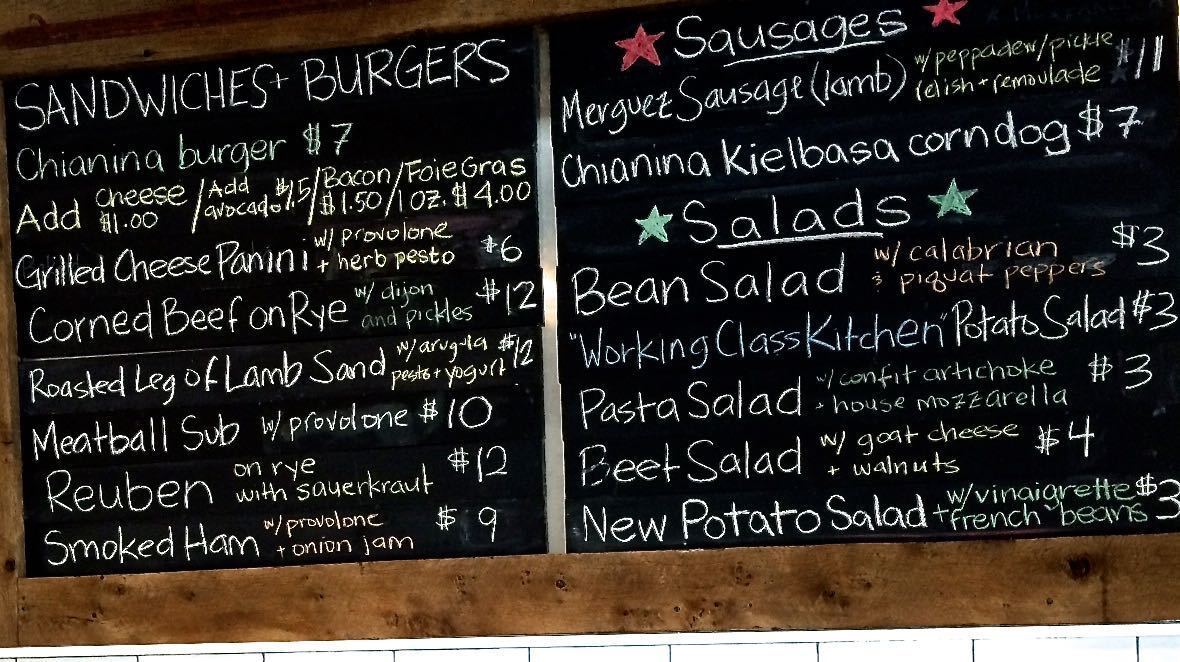 SANDWICHES + BURGERS
Chianina burger $7
Add Cheese $1.00 / Add avocado $1.5 / Bacon $1.50 / Foie Gras 1 oz. $4.00
Grilled Cheese Panini w/ provolone + herb pesto $6
Corned Beef on Rye w/ dijon and pickles $12
Roasted Leg of Lamb Sand w/ arugula pesto + yogurt $12
Meatball Sub w/ provolone $10
Reuben on rye with sauerkraut $12
Smoked Ham w/ provolone + onion jam $9
Sausages
Merguez Sausage (lamb) w/ peppadew/pickle relish + remoulade $11
Chianina Kielbasa corndog $7
Salads
Bean Salad w/ calabrian & piquat peppers $3
"Working Class Kitchen" Potato Salad $3
Pasta Salad w/ confit artichoke + house mozzarella $3
Beet Salad w/ goat cheese + walnuts $4
New Potato Salad w/ vinaigrette + french beans $3